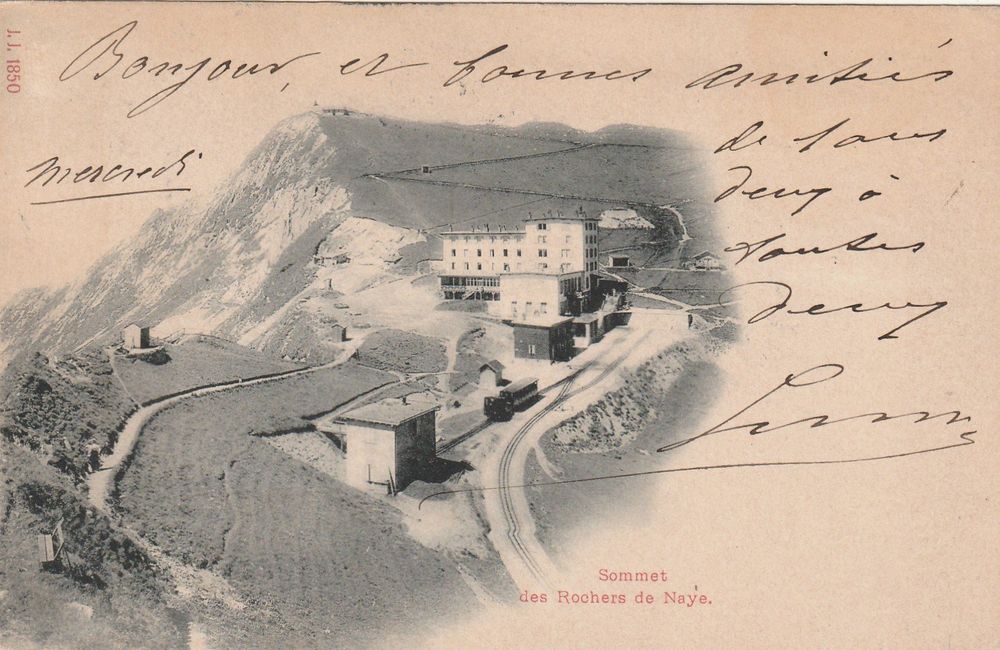 J. J. 1850
Bonjour, et bonnes amitiés
de tous
deux à
toutes
deux
mercredi
Sommet
des Rochers de Naye.